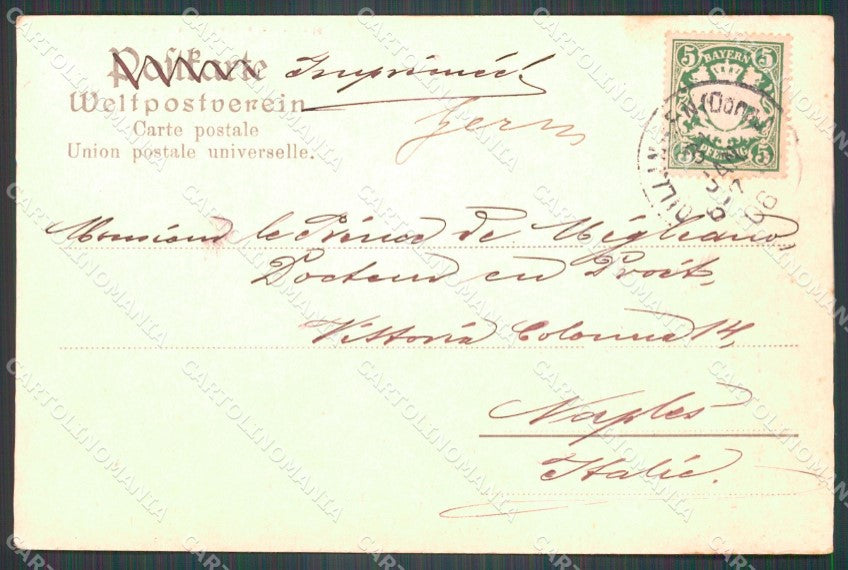 Postkarte Imprimé!
Weltpostverein
Carte postale
Union postale universelle.
5 BAYERN 5
5 PFENNIG 5
DILLINGEN (Donau)
JAN
06
Monsieur le Prince de Migliano
Docteur en Droit,
Vittoria Colonna 14,
Naples
Italie.
CARTOLINOMANIA